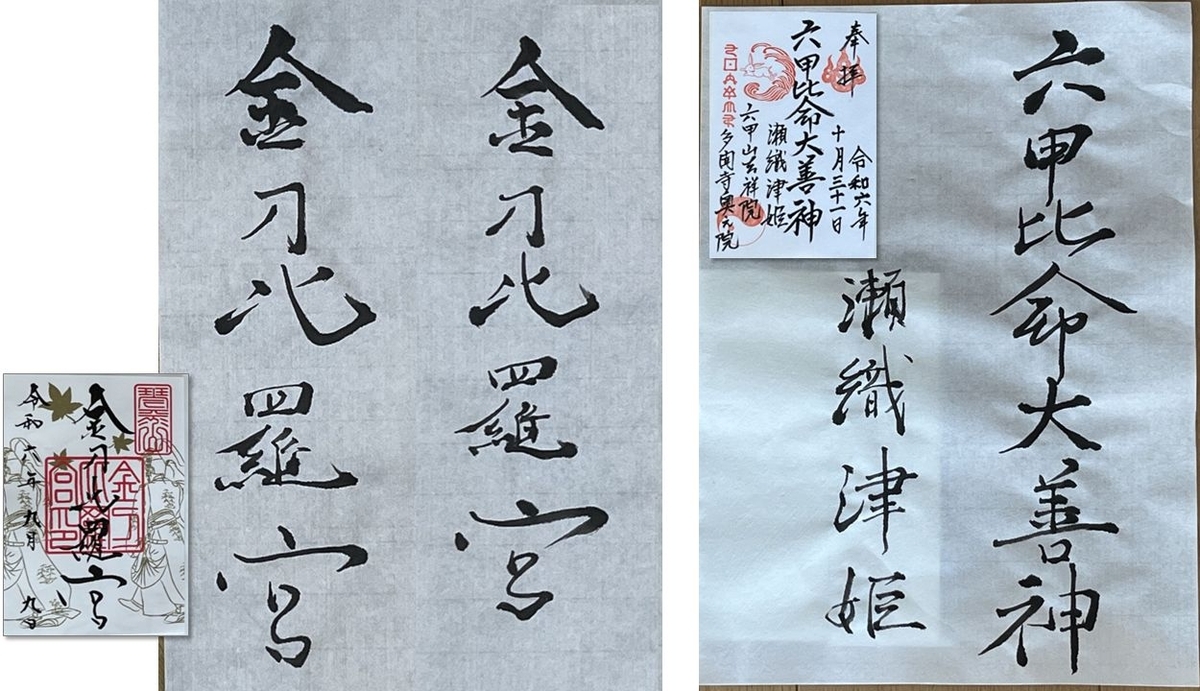 金刀比羅宮
金刀比羅宮
金刀比羅宮
令和六年九月九日
六甲比命大善神
瀬織津姫
奉拝
令和六年
十月三十一日
六甲比命大善神
瀬織津姫
六甲山吉祥院
多聞寺奥之院